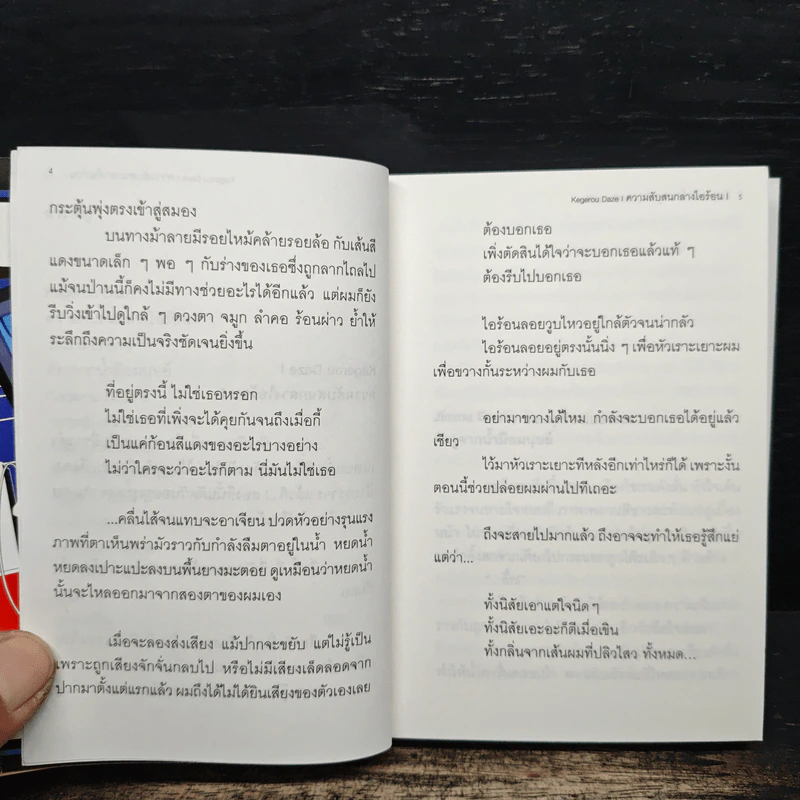 4
กระตุ้นพุ่งตรงเข้าสู่สมอง
บนทางม้าลายมีรอยไหม้คล้ายรอยล้อ กับเส้นสี
แดงขนาดเล็ก ๆ พอ ๆ กับร่างของเธอซึ่งถูกลากไถลไป
แม้จนป่านนี้ก็คงไม่มีทางช่วยอะไรได้อีกแล้ว แต่ผมก็ยัง
รีบวิ่งเข้าไปดูใกล้ ๆ ดวงตา จมูก ลำคอ ร้อนผ่าว ย้ำให้
ระลึกถึงความเป็นจริงชัดเจนยิ่งขึ้น
ที่อยู่ตรงนี้ ไม่ใช่เธอหรอก
ไม่ใช่เธอที่เพิ่งจะได้คุยกันจนถึงเมื่อกี้
เป็นแค่ก้อนสีแดงของอะไรบางอย่าง
ไม่ว่าใครจะว่าอะไรก็ตาม นี่มันไม่ใช่เธอ
...คลื่นไส้จนแทบจะอาเจียน ปวดหัวอย่างรุนแรง
ภาพที่ตาเห็นพร่ามัวราวกับกำลังลืมตาอยู่ในน้ำ หยดน้ำ
หยดลงเปาะแปะลงบนพื้นยางมะตอย ดูเหมือนว่าหยดน้ำ
นั้นจะไหลออกมาจากสองตาของผมเอง
เมื่อจะลองส่งเสียง แม้ปากจะขยับ แต่ไม่รู้เป็น
เพราะถูกเสียงจักจั่นกลบไป หรือไม่มีเสียงเล็ดลอดจาก
ปากมาตั้งแต่แรกแล้ว ผมถึงได้ไม่ได้ยินเสียงของตัวเองเลย
Kegerou Daze I ความสับสนกลางไอร้อน I 5
ต้องบอกเธอ
เพิ่งตัดสินได้ใจว่าจะบอกเธอแล้วแท้ ๆ
ต้องรีบไปบอกเธอ
ไอร้อนลอยวูบไหวอยู่ใกล้ตัวจนน่ากลัว
ไอร้อนลอยอยู่ตรงนั้นนิ่ง ๆ เพื่อหัวเราะเยาะผม
เพื่อขวางกั้นระหว่างผมกับเธอ
อย่ามาขวางได้ไหม กำลังจะบอกเธอได้อยู่แล้ว
เชียว
ไว้มาหัวเราะเยาะทีหลังอีกเท่าไหร่ก็ได้ เพราะงั้น
ตอนนี้ช่วยปล่อยผมผ่านไปทีเถอะ
ถึงจะสายไปมากแล้ว ถึงอาจจะทำให้เธอรู้สึกแย่
แต่ว่า...
ทั้งนิสัยเอาแต่ใจนิด ๆ
ทั้งนิสัยเอะอะก็ตีเมื่อเขิน
ทั้งกลิ่นจากเส้นผมที่ปลิวไสว ทั้งหมด...